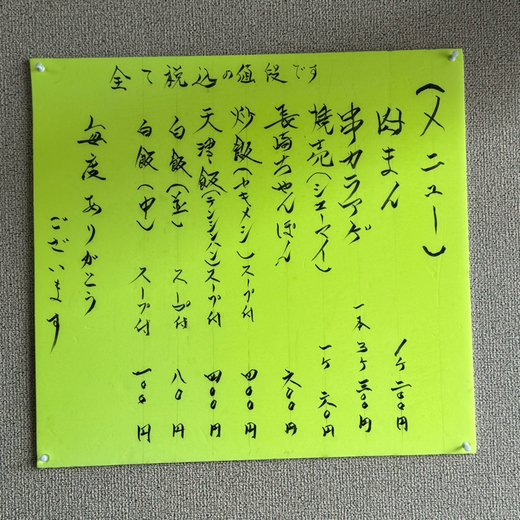 全て税込の値段です
(メニュー)
肉まん 1ケ 二〇〇円
串カラアゲ 一本 三ケ 三〇〇円
焼売(シューマイ) 一ケ 六〇円
長崎ちゃんぽん 六〇〇円
炒飯(ヤキメシ)スープ付 四〇〇円
天津飯(テンシンハン)スープ付 四〇〇円
白飯(並) スープ付 八〇円
白飯(中) スープ付 一〇〇円
毎度ありがとう
ございます